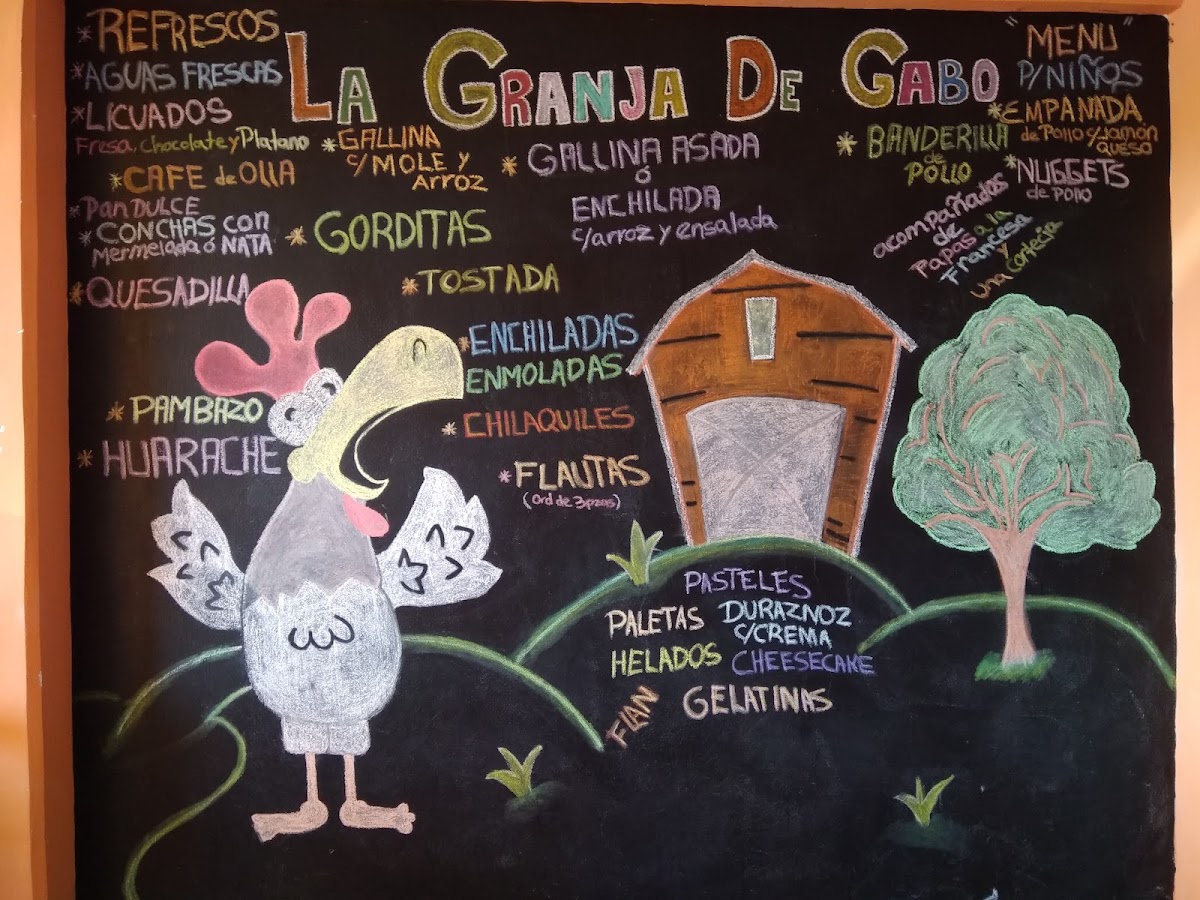 LA GRANJA DE GABO
*REFRESCOS
*AGUAS FRESCAS
*LICUADOS
Fresa, Chocolate y Platano
*CAFE de OLLA
*Pan DULCE
*CONCHAS CON
Mermelada ó NATA
*QUESADILLA
*PAMBAZO
*HUARACHE
*GALLINA
c/ MOLE Y
ARROZ
*GORDITAS
*TOSTADA
*ENCHILADAS
ENMOLADAS
*CHILAQUILES
*FLAUTAS
(Ord de 3pzas)
*GALLINA ASADA
ó
ENCHILADA
c/arroz y ensalada
*BANDERILLA
de
POLLO
"MENU"
P/NIÑOS
*EMPANADA
de Pollo c/Jamón
queso
*NUGGETS
de pollo
acompañados
de
Papas a la
Francesa
y
una Cortecia
PASTELES
PALETAS
DURAZNOZ
c/CREMA
HELADOS
CHEESECAKE
FLAN
GELATINAS